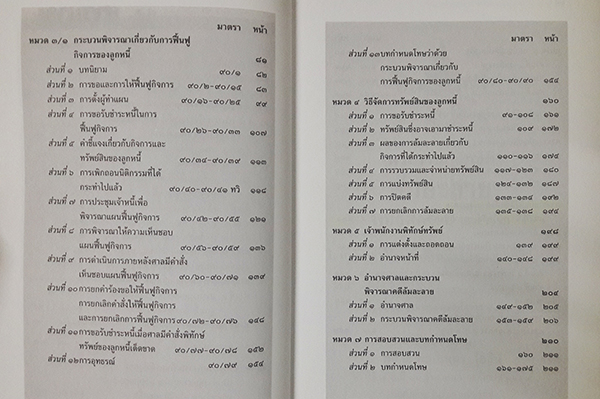 มาตรา หน้า
หมวด ๓/๑ กระบวนพิจารณาเกี่ยวกับการฟื้นฟู
กิจการของลูกหนี้ ๘๑
ส่วนที่ ๑ บทนิยาม ๙๐/๑ ๘๒
ส่วนที่ ๒ การขอและการให้ฟื้นฟูกิจการ ๙๐/๒-๙๐/๑๕ ๘๓
ส่วนที่ ๓ การตั้งผู้ทำแผน ๙๐/๑๖-๙๐/๒๕ ๙๙
ส่วนที่ ๔ การขอรับชำระหนี้ในการ
ฟื้นฟูกิจการ ๙๐/๒๖-๙๐/๓๓ ๑๐๗
ส่วนที่ ๕ คำชี้แจงเกี่ยวกับกิจการและ
ทรัพย์สินของลูกหนี้ ๙๐/๓๔-๙๐/๓๙ ๑๑๓
ส่วนที่ ๖ การเพิกถอนนิติกรรมที่ได้
กระทำไปแล้ว ๙๐/๔๐-๙๐/๔๑ ทวิ ๑๑๘
ส่วนที่ ๗ การประชุมเจ้าหนี้เพื่อ
พิจารณาแผนฟื้นฟูกิจการ ๙๐/๔๒-๙๐/๕๕ ๑๒๑
ส่วนที่ ๘ การพิจารณาให้ความเห็นชอบ
แผนฟื้นฟูกิจการ ๙๐/๕๖-๙๐/๕๙ ๑๓๖
ส่วนที่ ๙ การดำเนินการภายหลังศาลมีคำสั่ง
เห็นชอบแผนฟื้นฟูกิจการ ๙๐/๖๐-๙๐/๗๑ ๑๓๙
ส่วนที่ ๑๐ การยกคำร้องขอให้ฟื้นฟูกิจการ
การยกเลิกคำสั่งให้ฟื้นฟูกิจการ
และการยกเลิกการฟื้นฟูกิจการ ๙๐/๗๒-๙๐/๗๖ ๑๔๘
ส่วนที่ ๑๑ การขอรับชำระหนี้เมื่อศาลมีคำสั่งพิทักษ์
ทรัพย์ของลูกหนี้เด็ดขาด ๙๐/๗๗-๙๐/๗๘ ๑๕๒
ส่วนที่ ๑๒ การอุทธรณ์ ๙๐/๗๙ ๑๕๔
มาตรา หน้า
ส่วนที่ ๑๓ บทกำหนดโทษว่าด้วย
กระบวนพิจารณาเกี่ยวกับ
การฟื้นฟูกิจการของลูกหนี้ ๙๐/๘๐-๙๐/๙๐ ๑๕๔
หมวด ๔ วิธีจัดการทรัพย์สินของลูกหนี้ ๑๖๐
ส่วนที่ ๑ การขอรับชำระหนี้ ๙๑-๑๐๘ ๑๖๑
ส่วนที่ ๒ ทรัพย์สินซึ่งอาจเอามาชำระหนี้ ๑๐๙ ๑๗๒
ส่วนที่ ๓ ผลของการล้มละลายเกี่ยวกับ
กิจการที่ได้กระทำไปแล้ว ๑๑๐-๑๑๖ ๑๗๕
ส่วนที่ ๔ การรวบรวมและจำหน่ายทรัพย์สิน ๑๑๗-๑๒๓ ๑๘๐
ส่วนที่ ๕ การแบ่งทรัพย์สิน ๑๒๔-๑๓๒ ๑๘๗
ส่วนที่ ๖ การปิดคดี ๑๓๓-๑๓๔ ๑๙๒
ส่วนที่ ๗ การยกเลิกการล้มละลาย ๑๓๕-๑๓๘ ๑๙๕
หมวด ๕ เจ้าพนักงานพิทักษ์ทรัพย์ ๑๙๘
ส่วนที่ ๑ การแต่งตั้งและถอดถอน ๑๓๙ ๑๙๙
ส่วนที่ ๒ อำนาจหน้าที่ ๑๔๐-๑๔๘ ๑๙๙
หมวด ๖ อำนาจศาลและกระบวน
พิจารณาคดีล้มละลาย ๒๐๔
ส่วนที่ ๑ อำนาจศาล ๑๔๙-๑๕๒ ๒๐๕
ส่วนที่ ๒ กระบวนพิจารณาคดีล้มละลาย ๑๕๓-๑๕๙ ๒๐๖
หมวด ๗ การสอบสวนและบทกำหนดโทษ ๒๑๐
ส่วนที่ ๑ การสอบสวน ๑๖๐ ๒๑๑
ส่วนที่ ๒ บทกำหนดโทษ ๑๖๑-๑๗๕ ๒๑๑